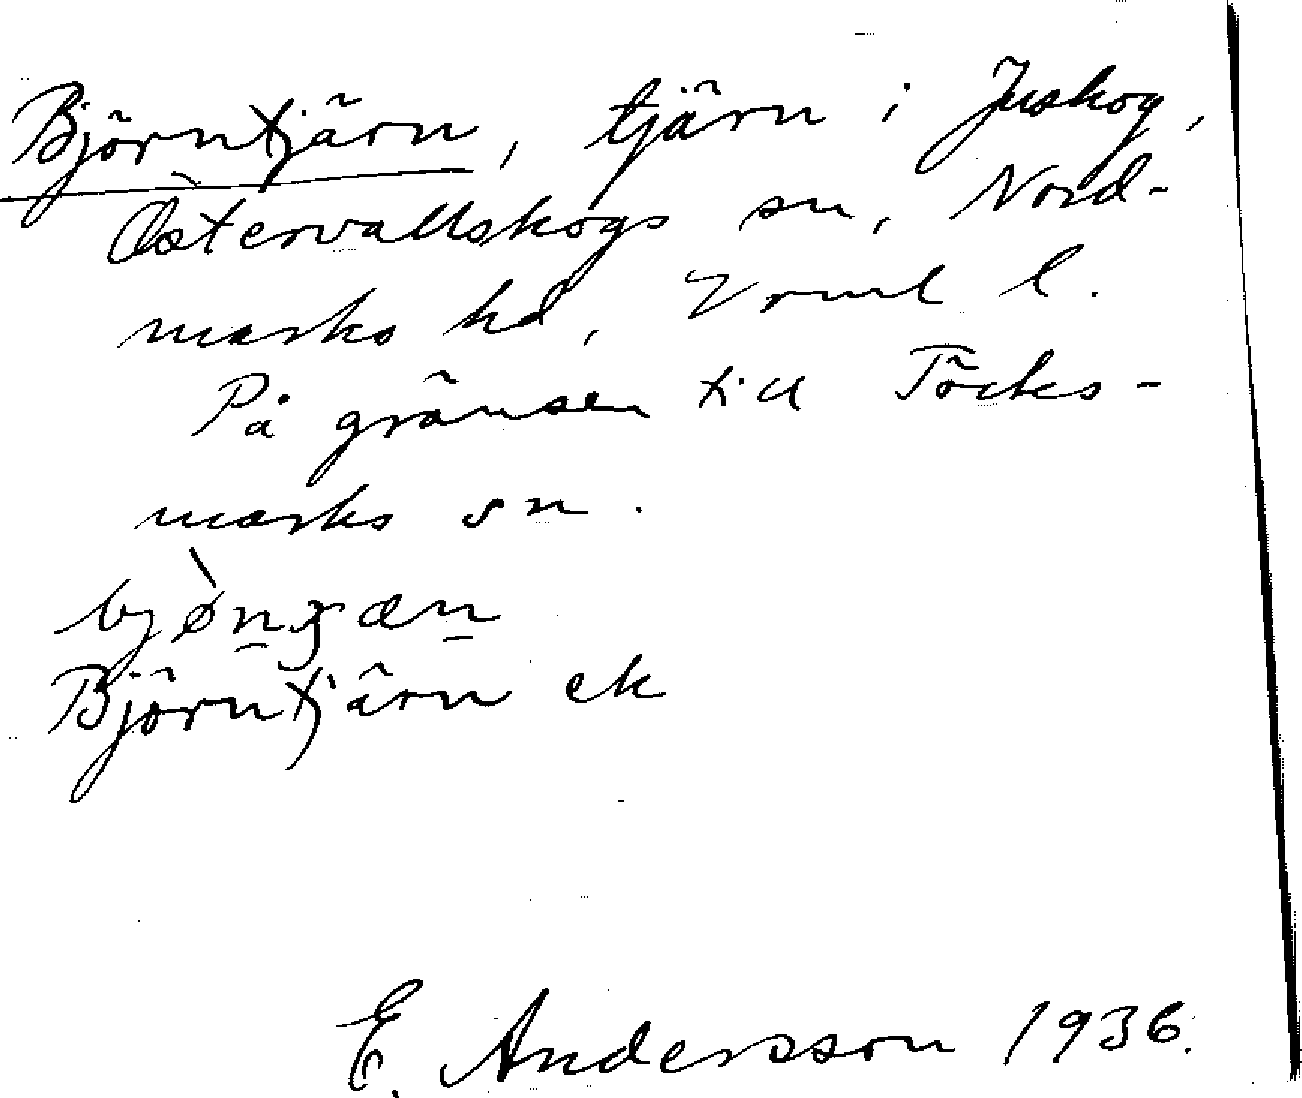 Björntjärn, tjärn i Juskog,
Östervallskogs sn, Nord-
marks hd, Vrml l.
På gränsen till Töcks-
marks sn.
Björntjärn ek
E. Andersson 1936.